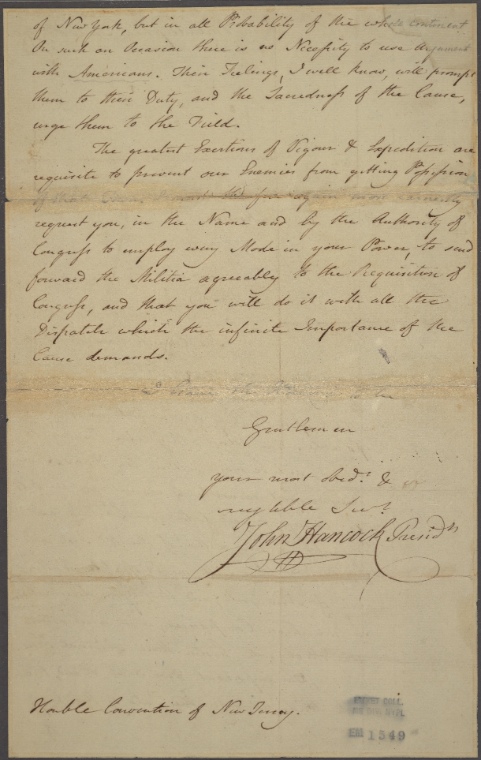 of New York, but in all Probability of the whole continent.
On such an Occasion there is no Necessity to use Arguments
with Americans. Their Feelings, I well know, will prompt
them to their Duty, and the Sacredness of the Cause,
urge them to the Field.
The greatest Exertions of Vigour & Expedition are
requisite to prevent our Enemies from getting Possession
of that again most earnestly
request you, in the Name and by the Authority of
Congress to employ every Mode in your Power, to send
forward the Militia agreeably to the Requisition of
Congress, and that you will do it with all the
Dispatch which the infinite Importance of the
Cause demands.
I have the to be
Gentlemen
your most obedt. &
Servt.
John Hancock Presidt
Honble Convention of New Jersey.
1349